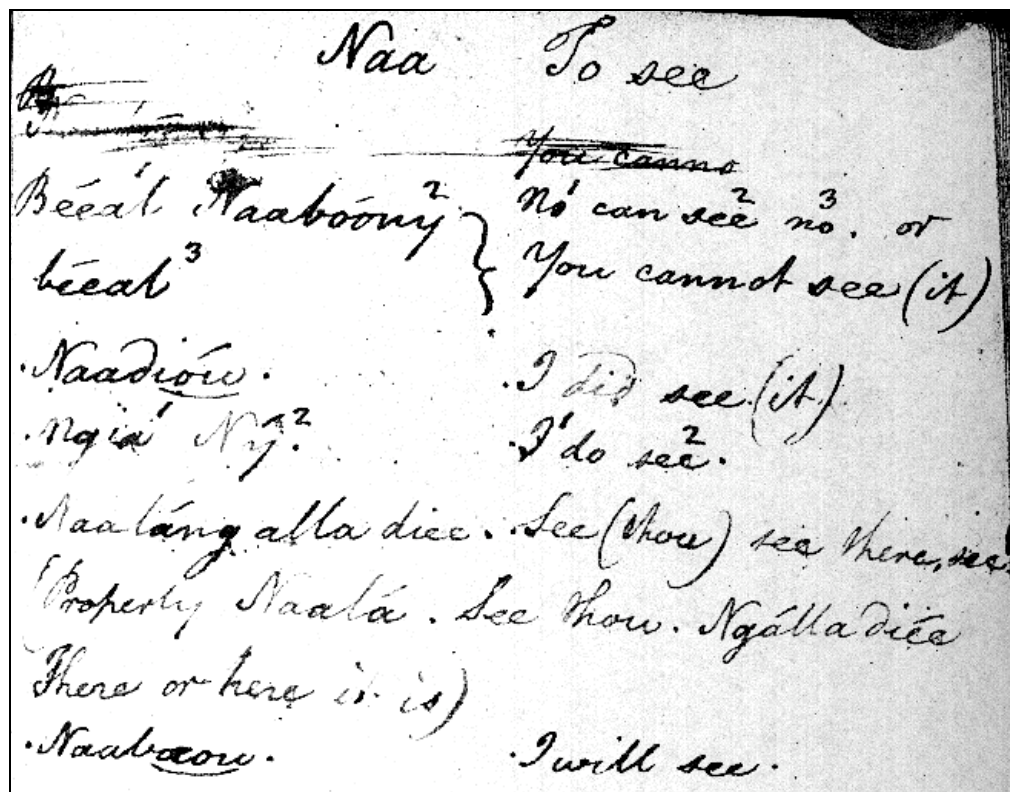 Naa To see
You canno
Bééál¹ Naabóóny² No¹ can see² no³. or
béeal³ You cannot see (it)
Naadióu. I did see (it)
Ngia¹ Ny². I¹ do see².
Naaláng alla diee. See (thou) see there, see
(Property Naalá. See thou. Ngálla diée
There or here it is)
Naabaou. I will see.